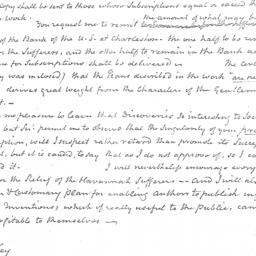 Copy shall be sent to those whose Subscriptions equal or exceed the
work. the amount of what may be
You request me to remit
of the Bank of the U.S. at Charleston. the one half to be
the Sufferers, and the other half to remain in the Bank
for Subscriptions shall be delivered in The
was inclosed) that the Plans described in the work are
derives great weight from the Character of the Gentlemen
t. —
me pleasure to learn that Discoveries so interesting to Soci
but Sir! permit me to observe that the Singularity of your
ption, will I suspect rather retard than promote its Succe
l, but it is candid, to say that as I do not approve of, so I ca
d it. I will nevertheless encourage every
for the Relief of the Havannah Sufferers — And I will al
& Customary Plan for enabling Authors to publish
Inventions; which if really useful to the Public, can
profitable to themselves —
ey